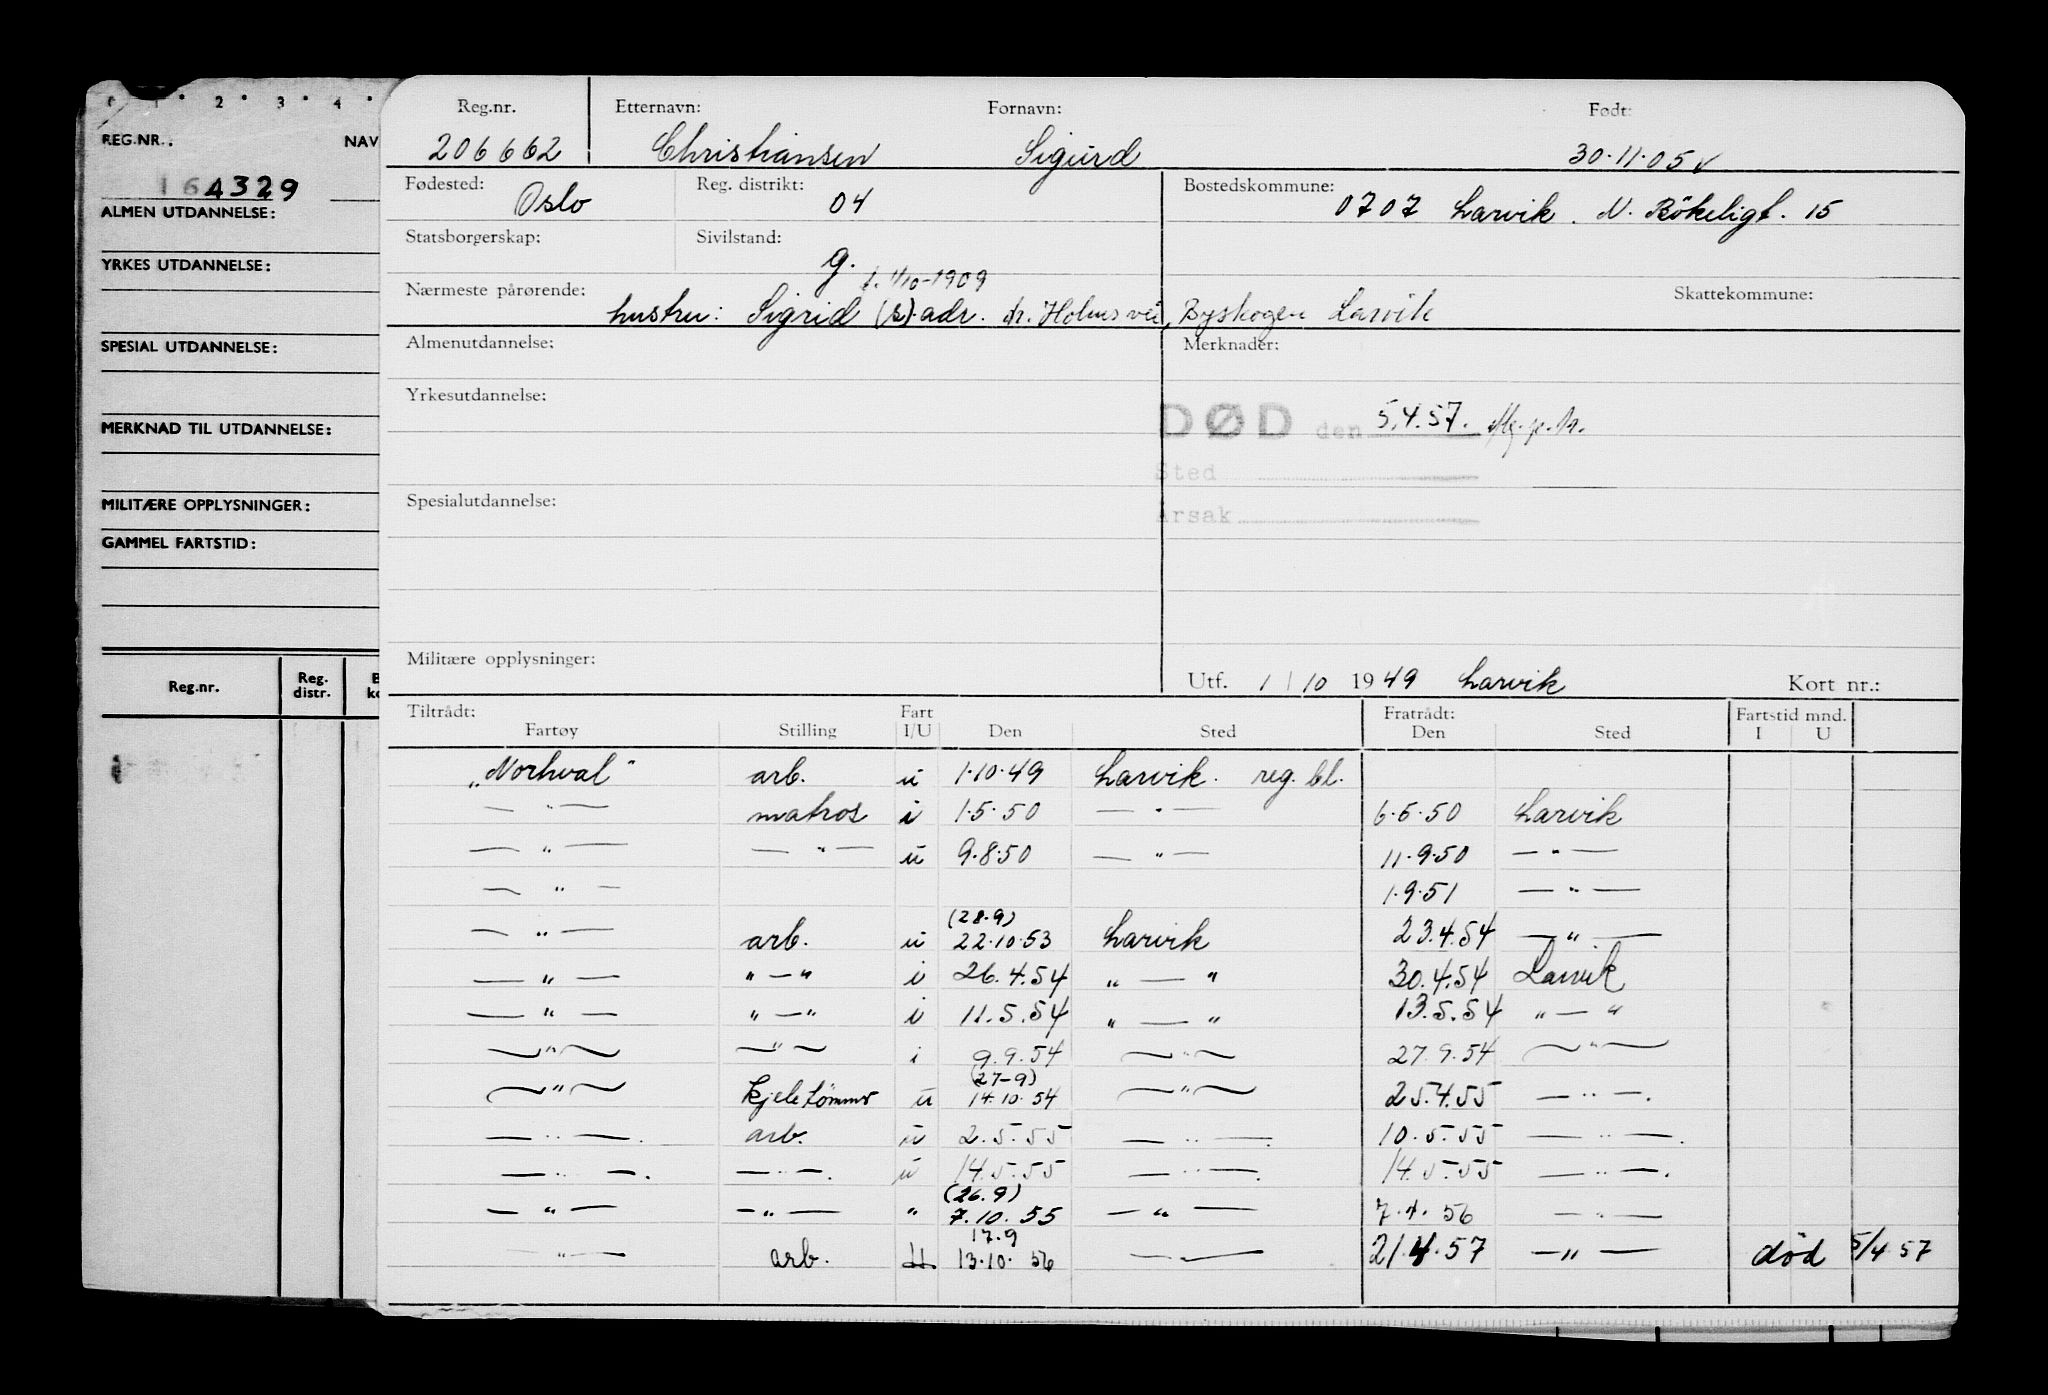 0 1 2 3 4
REG.NR.: NAV
164329
ALMEN UTDANNELSE:
YRKES UTDANNELSE:
SPESIAL UTDANNELSE:
MERKNAD TIL UTDANNELSE:
MILITÆRE OPPLYSNINGER:
GAMMEL FARTSTID:
Reg.nr. Reg. distr.
Reg.nr. Etternavn: Fornavn: Født:
206662 Christiansen Sigurd 30.11.05 v
Fødested: Oslo Reg. distrikt: 04 Bostedskommune: 0707 Larvik. N. Bökeligt. 15
Statsborgerskap: Sivilstand: g.
f. 1/10-1909
Nærmeste pårørende: hustru: Sigrid (s) adr. dr. Holms vei, Byskogen Larvik Skattekommune:
Almenutdannelse: Merknader:
Yrkesutdannelse:
DØD den 5.4.57.
Sted
Årsak
Spesialutdannelse:
Militære opplysninger:
Utf. 1/10 1949 Larvik Kort nr.:
Tiltrådt: Fart Fratrådt: Fartstid mnd.
Fartøy Stilling I/U Den Sted Den Sted I U
"Norhval" arb. u 1.10.49 Larvik. reg. bl.
— " — matros i 1.5.50 — " — 6.6.50 Larvik
— " — — " — u 9.8.50 — " — 11.9.50 — " —
— " — 1.9.51 — " —
(28.9)
— " — arb. u 22.10.53 Larvik 23.4.54 — " —
— " — " — " i 26.4.54 " — " 30.4.54 Larvik
— " — " — " i 11.5.54 " — " 13.5.54 " — "
— " — — " — i 9.9.54 — " — 27.9.54 — " —
(27-9)
— " — kjeletømmer u 14.10.54 — " — 25.4.55 — " —.
— " —. arb. u 2.5.55 — " —. 10.5.55 — " —.
— " —. — " —. u 14.5.55 — " —. 14.5.55 — " —.
(26.9)
— " — — " — " 7.10.55 — " — 7.4.56 — " —
17.9
— " — arb. U 13.10.56 — " — 21.4.57 — " — død 5/4 57